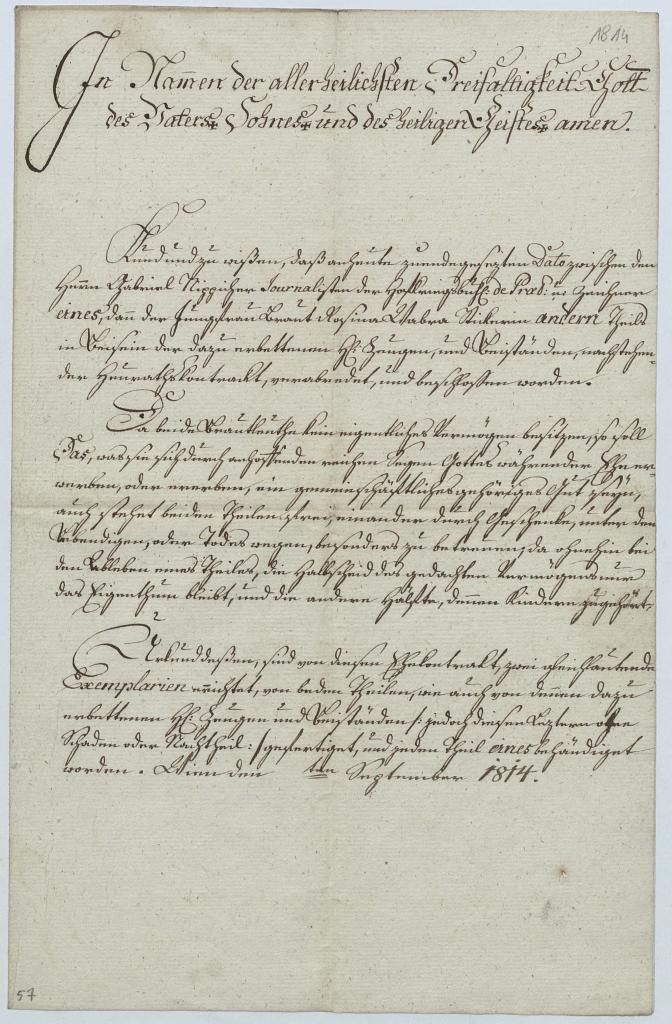 1814
In Nam̅en der allerheilichsten Dreifaltigkeit Gott
des Vaters + Sohnes + und des heiligen Geistes + amen.
Kund und zu wißen, daß an heute zu ende gesezten Dato zwischen den
Herrn Gabriel Nippicher Journalisten der Hofkriegsbuch: de Praes: u: Zeichner
eines, dann der Jungfrau Braut Rosina Wabra Stikerin andern Theils
in Beisein der dazu erbettenen H: H: Zeugen, und Beiständen, nachstehen=
der Heurathskontrackt, verabredet, und beschlossen worden.
Da beide Brautleuthe kein eigentliches Vermögen besitzen, so soll
Das, was sie sich durch anhoffenden reichen Segen Gottes während der Ehe er=
werben, oder ererben, ein gemeinschäftliches gehöriges Gut seyn,
auch stehet beiden Theilen frei, einander durch Geschenke, unter den
Lebendigen, oder Todes wegen, besonders zu betreuen, da ohnehin bei
den Ableben eines Theiles, die Halbscheid des gedachten Vermögens nur
das Eigenthum bleibt, und die andere Hälfte, denen Kindern zugehört.
Urkund deßen, sind von diesen Ehekontrakt, zwei gleichlautende
Exemplarien errichtet, von beden Theilen, wie auch von denen dazu
erbettenen H: H: Zeugen und Beiständen /: jedoch diesen Leztern ohne
Schaden oder Nachtheil :/ gefertiget, und jeden Theil eines behändiget
worden. Wien den ten September 1814.
57